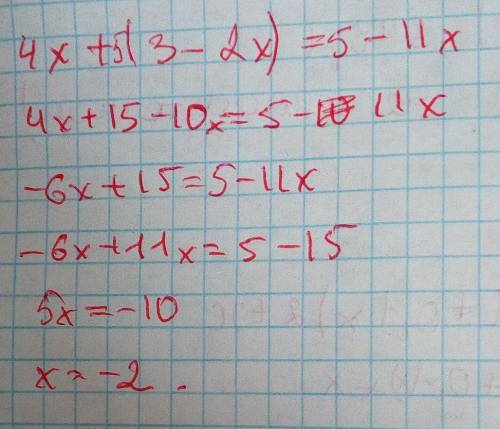 4x + 5(3 - 2x) = 5 - 11x
4x + 15 - 10x = 5 - 11x
-6x + 15 = 5 - 11x
-6x + 11x = 5 - 15
5x = -10
x = -2.